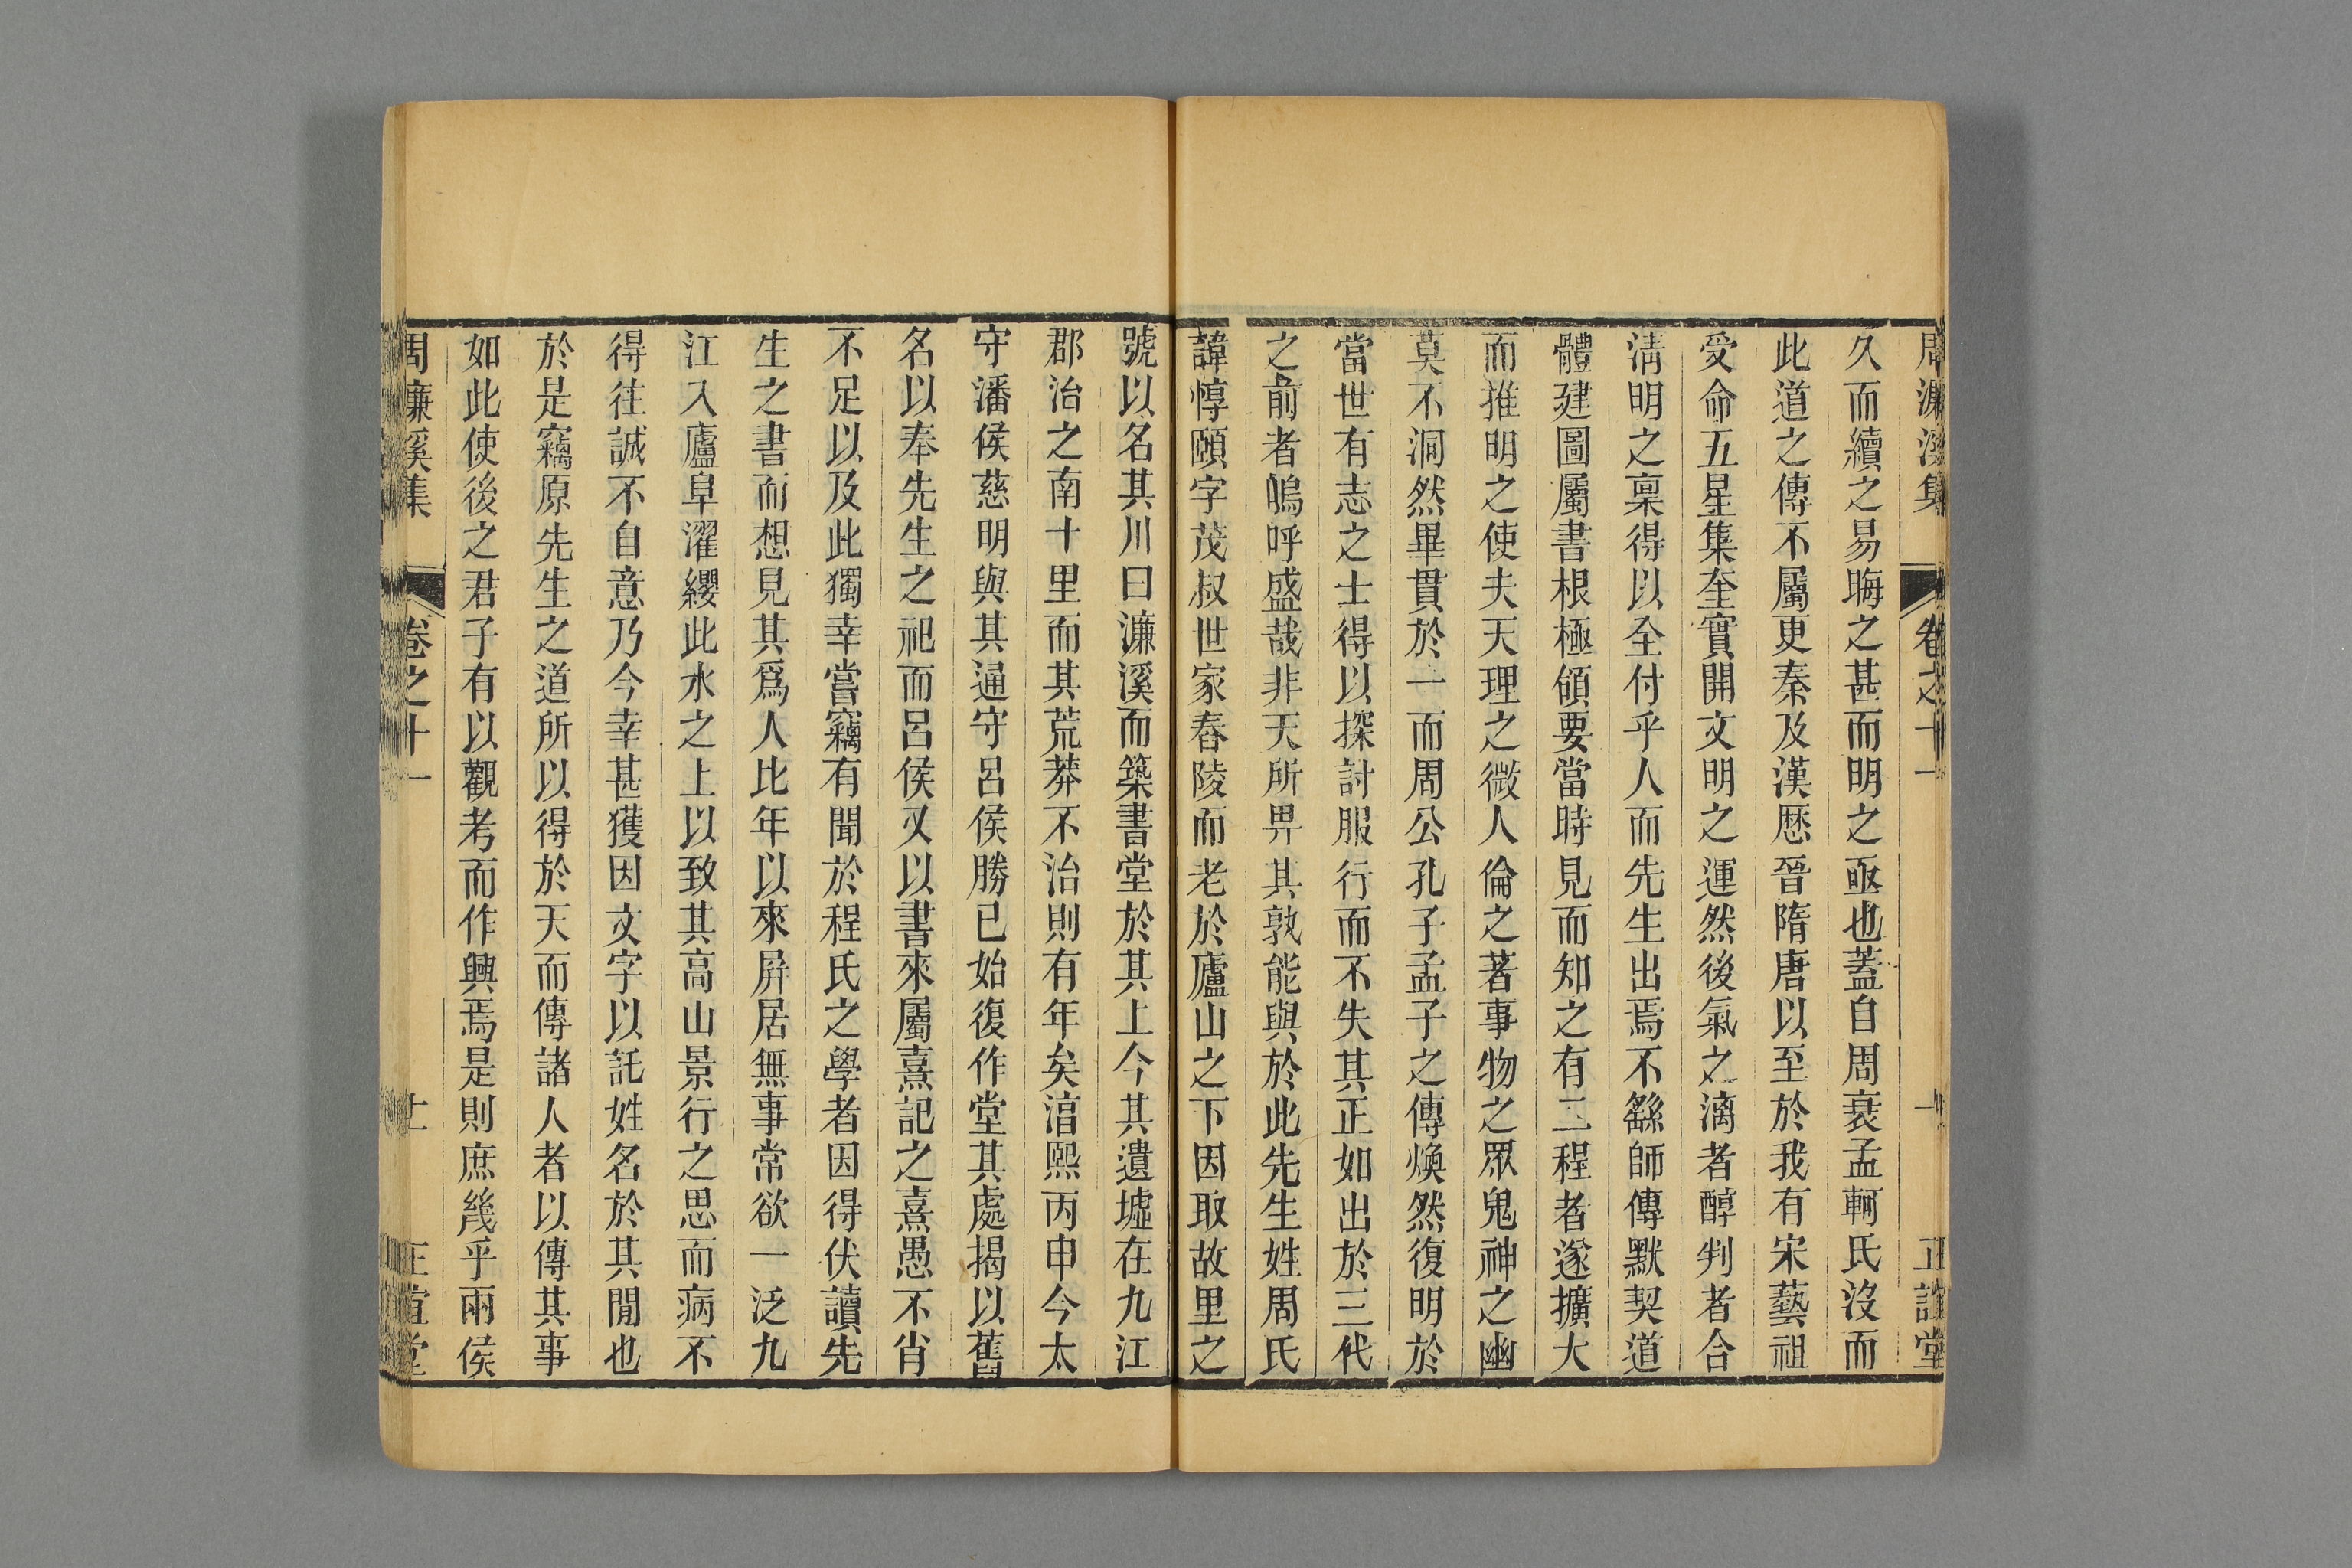 周濂溪集 卷之十一 正誼堂
久而續之易晦之甚而明之亟也蓋自周衰孟軻氏沒而
此道之傳不屬更秦及漢歷晉隋唐以至於我有宋藝祖
受命五星集奎實開文明之運然後氣之漓者醇判者合
淸明之稟得以全付乎人而先生出焉不繇師傳默契道
體建圖屬書根極領要當時見而知之有二程者遂擴大
而推明之使夫天理之微人倫之著事物之眾鬼神之幽
莫不洞然畢貫於一而周公孔子孟子之傳煥然復明於
當世有志之士得以探討服行而不失其正如出於三代
之前者嗚呼盛哉非天所畀其孰能與於此先生姓周氏
諱惇頤字茂叔世家舂陵而老於廬山之下因取故里之
號以名其川曰濂溪而築書堂於其上今其遺墟在九江
郡治之南十里而其荒莽不治則有年矣淯熙丙申今太
守潘侯慈明與其通守呂侯勝已始復作堂其處揭以舊
名以奉先生之祀而呂侯又以書來屬熹記之熹愚不肖
不足以及此獨幸嘗竊有聞於程氏之學者因得伏讀先
生之書而想見其爲人比年以來屛居無事常欲一泛九
江入廬阜濯纓此水之上以致其高山景行之思而病不
得往誠不自意乃今幸甚獲因文字以託姓名於其閒也
於是竊原先生之道所以得於天而傳諸人者以傳其事
如此使後之君子有以觀考而作興焉是則庶幾乎兩侯
周濂溪集 卷之十一 正誼堂